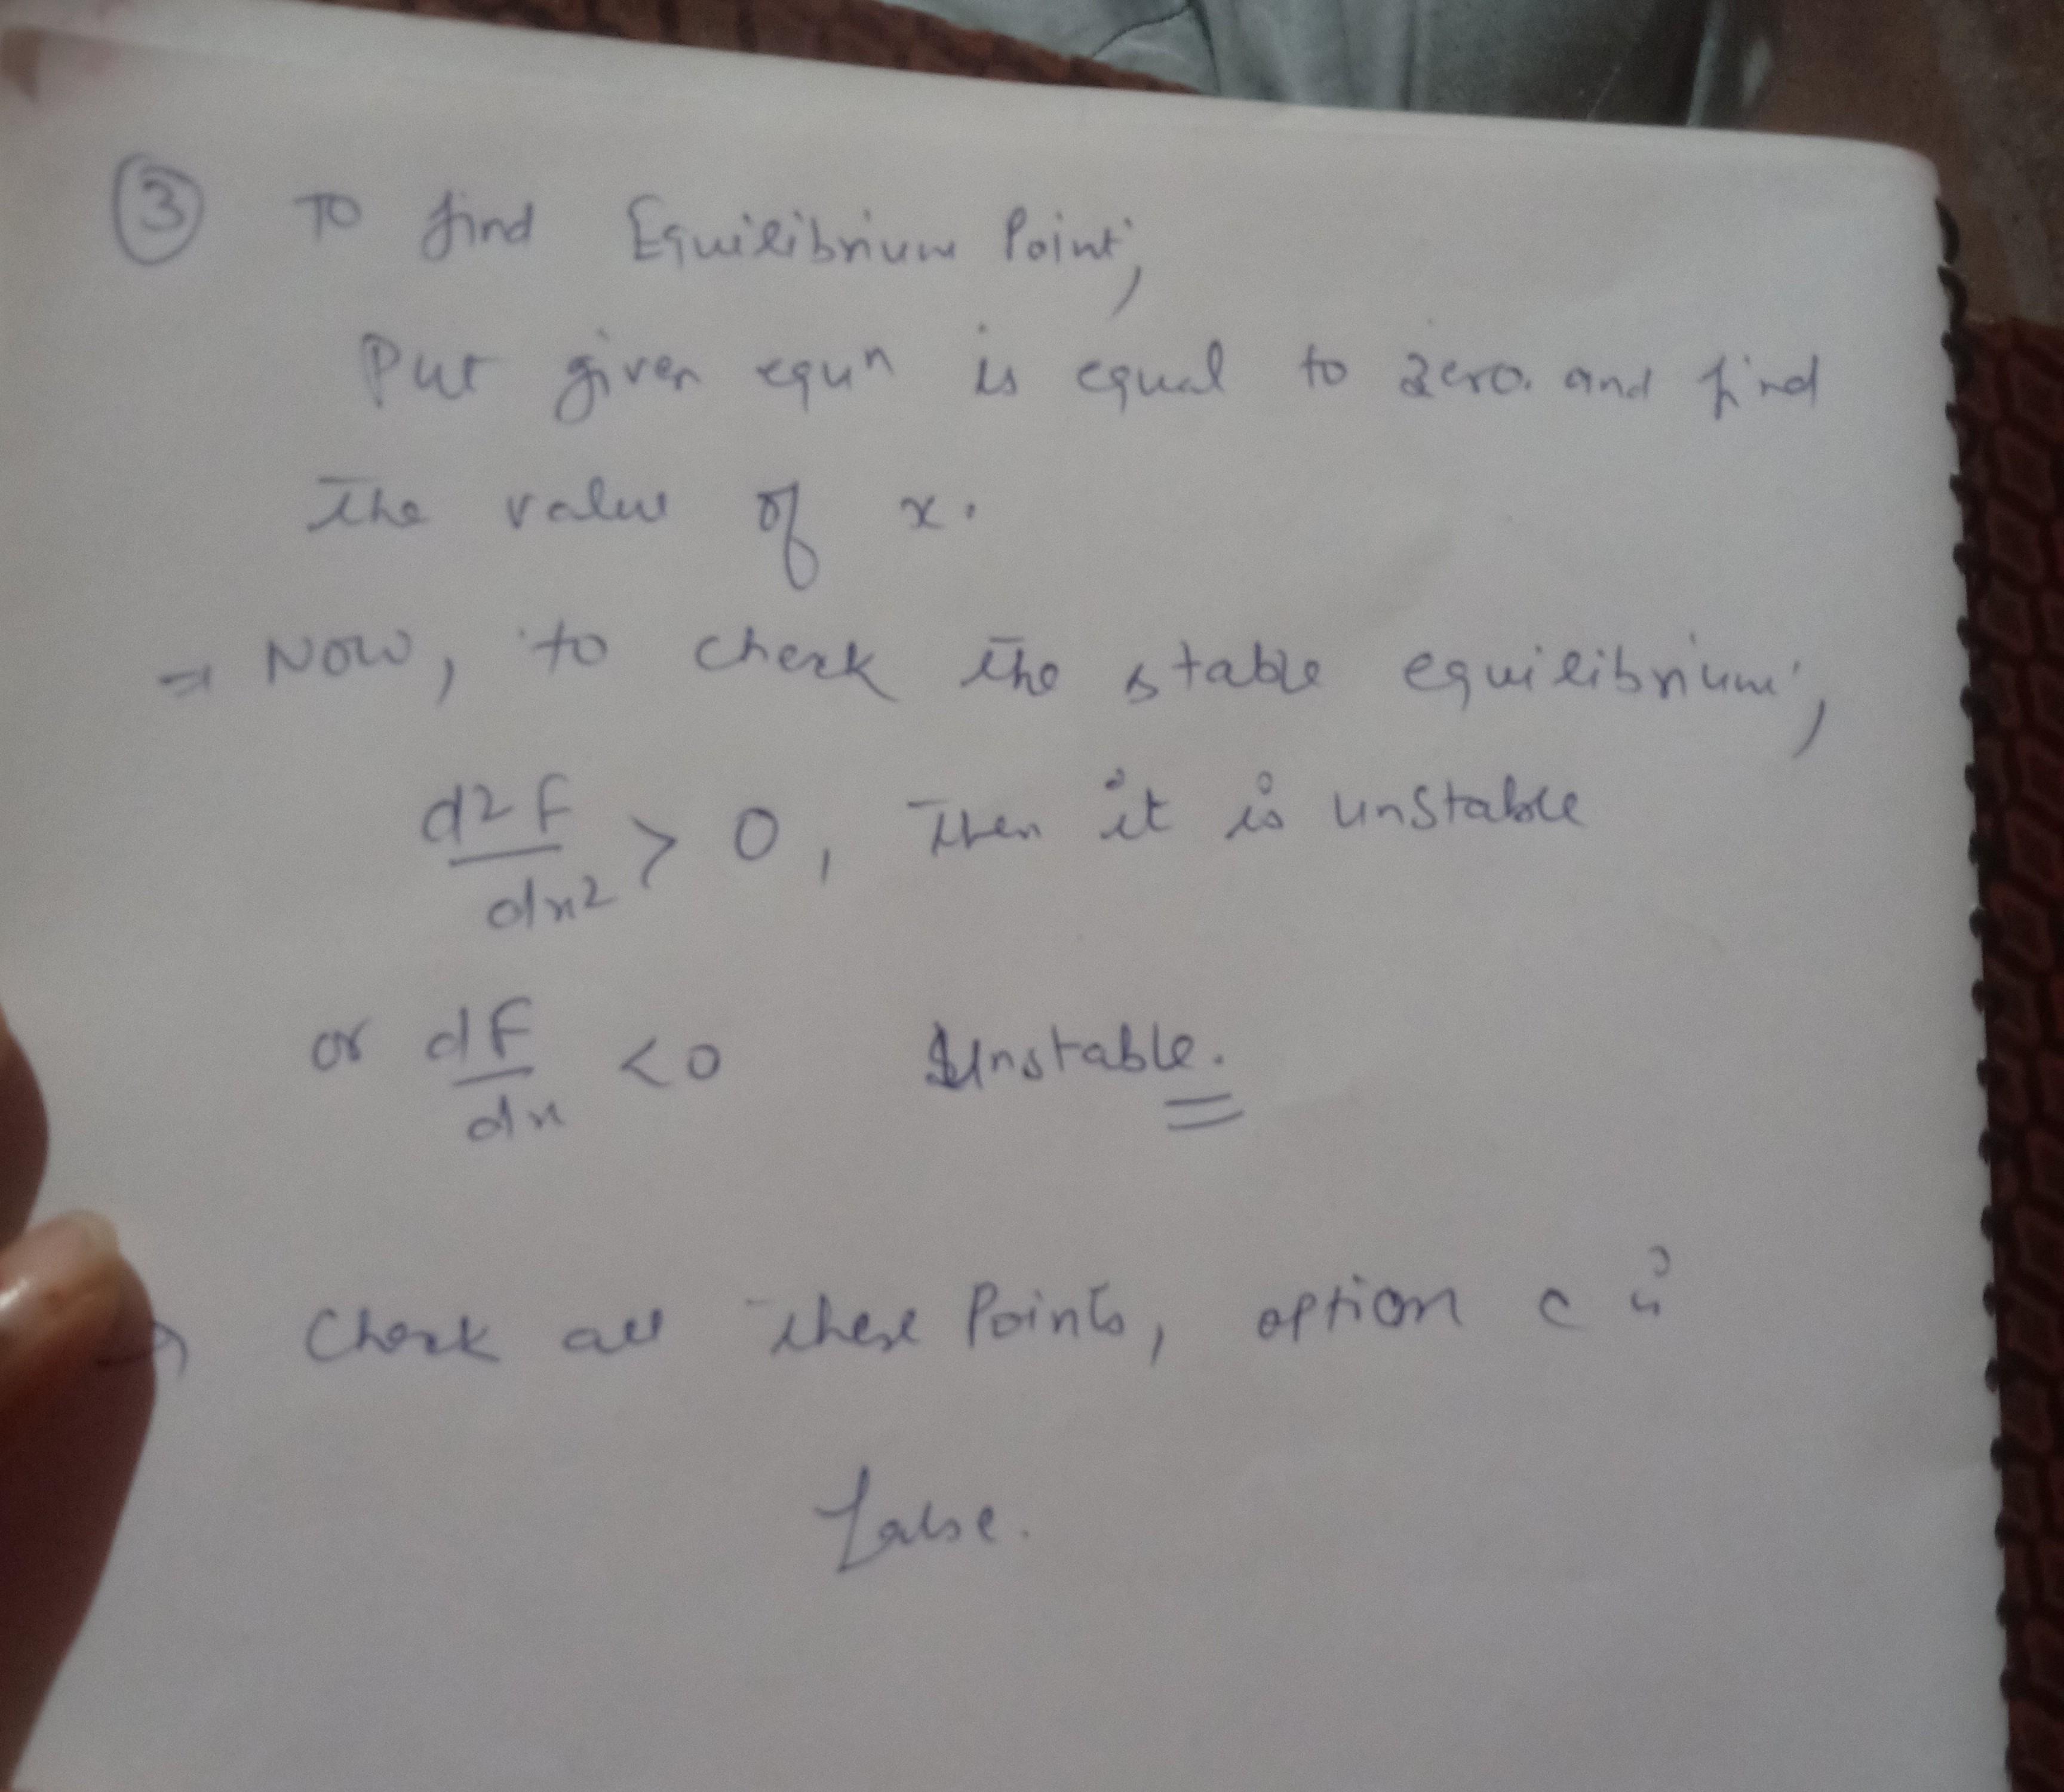 ③ To find Equilibrium Point,
Put given equn is equal to zero. and find
The value of x.
⇒ Now, to check the stable equilibrium,
d2f/dx2 > 0, Then it is unstable
or df/dx < 0 Unstable.
→ Check all these Points, option c is
false.